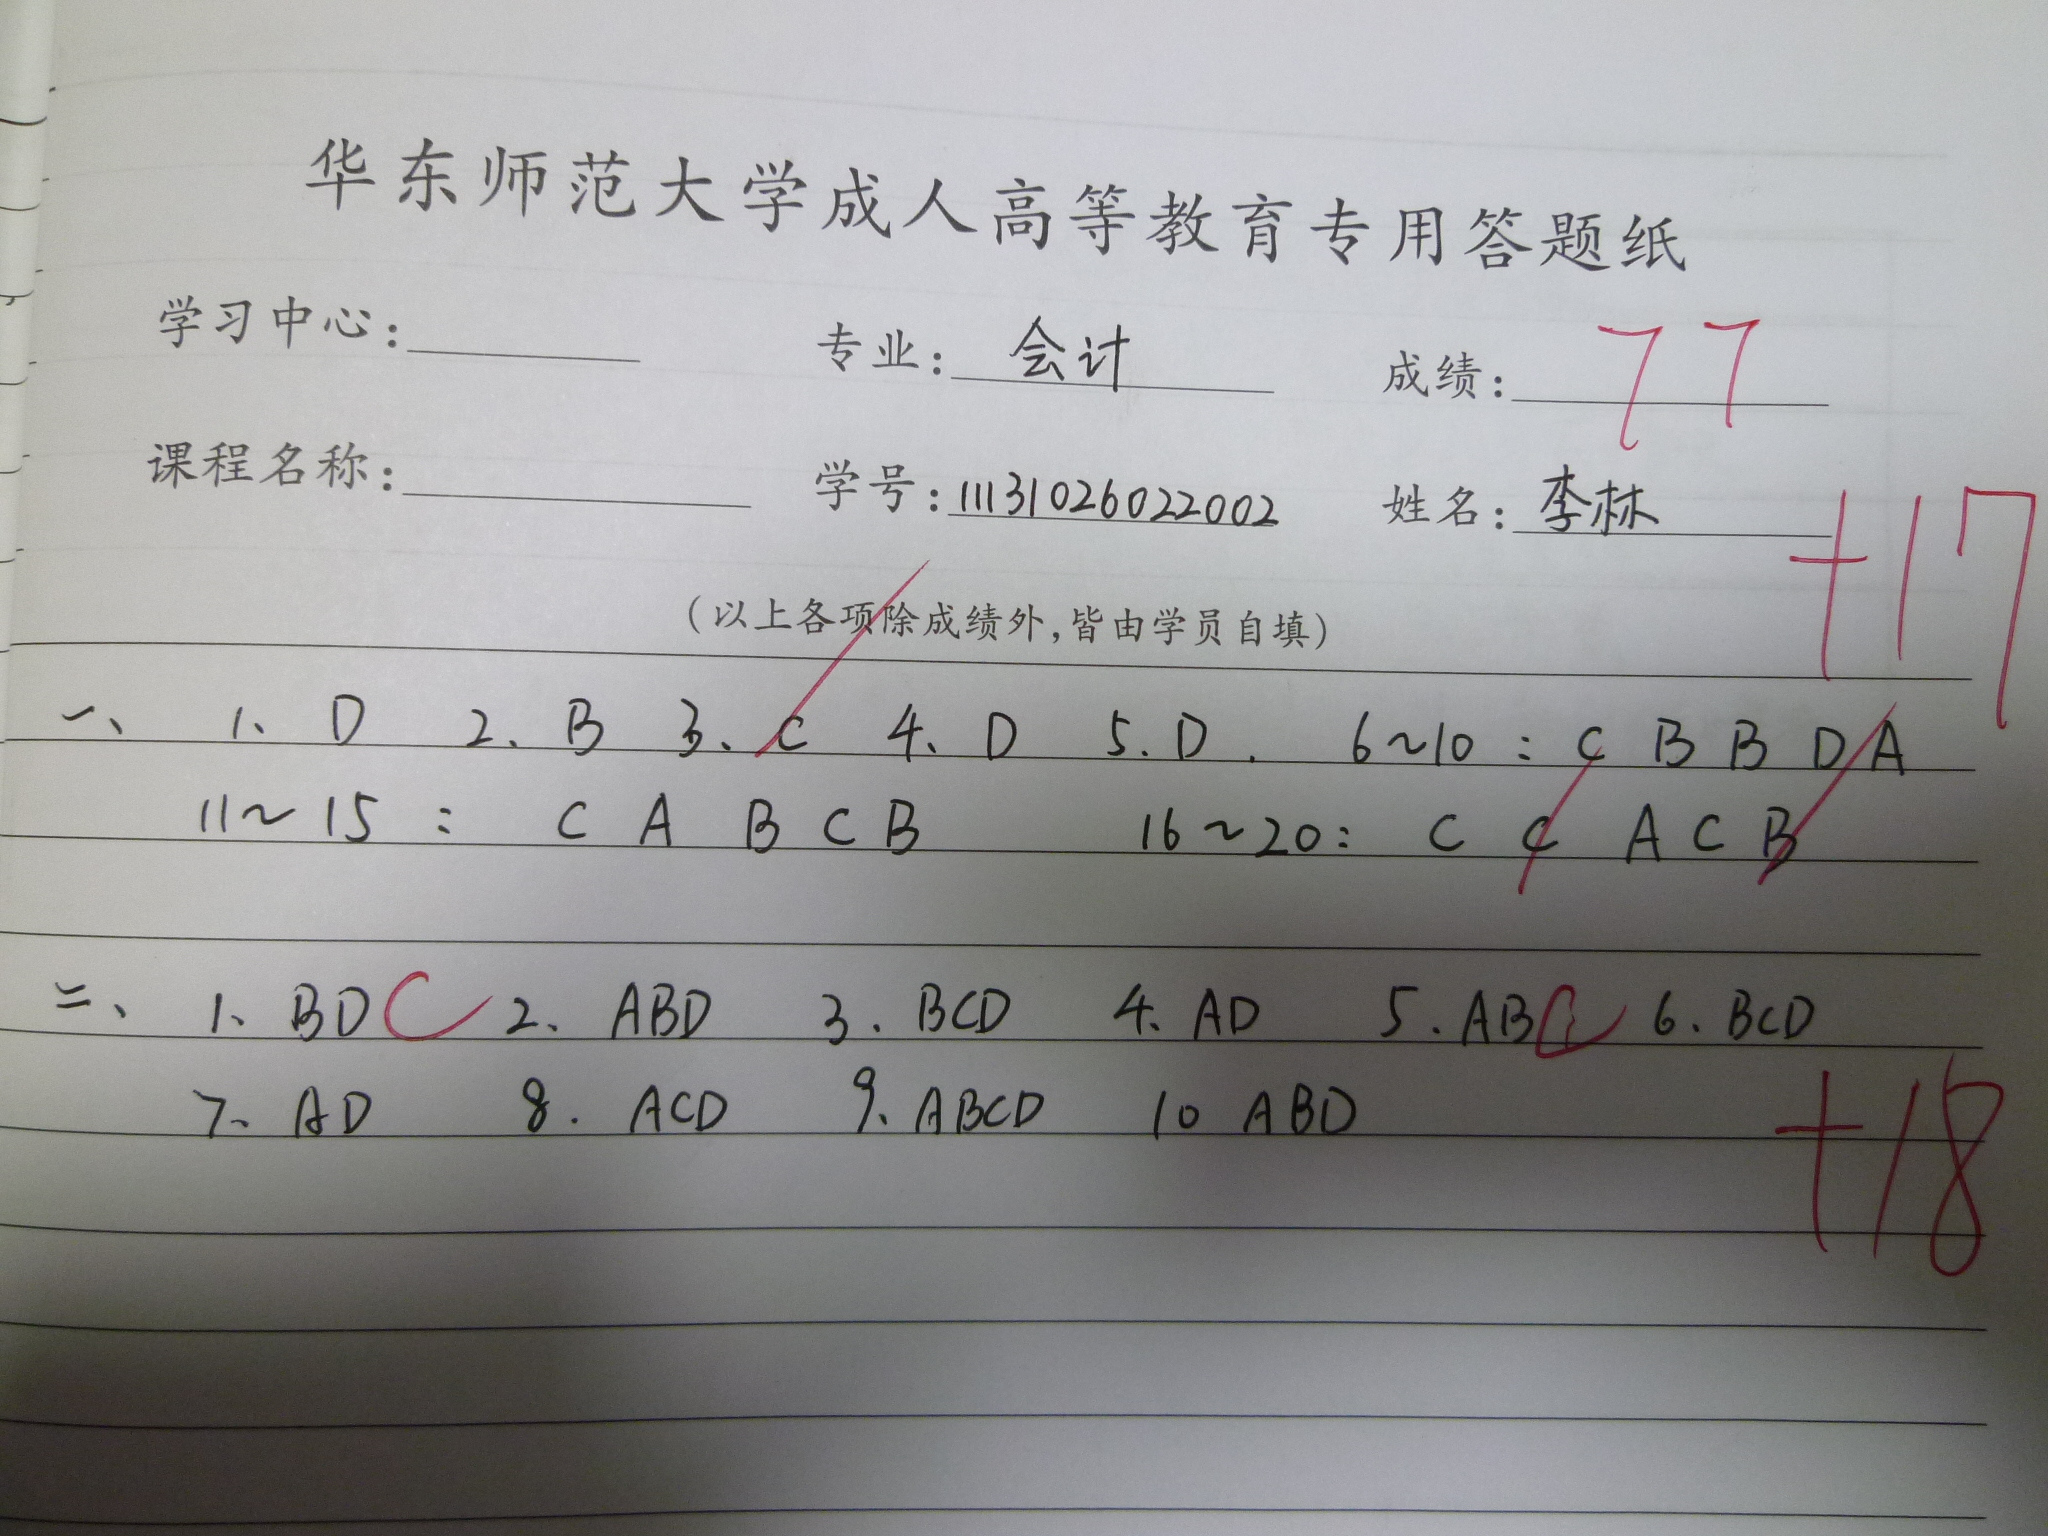 华东师范大学成人高等教育专用答题纸
学习中心: 专业: 会计 成绩: 77
课程名称: 学号: 11131026022002 姓名: 李林
+17
(以上各项除成绩外,皆由学员自填)
一、 1、 D 2、 B 3、 C 4、 D 5. D . 6~10 : C B B D A
11~15 : C A B C B 16~20: C C A C B
二、 1、 BD C 2、 ABD 3. BCD 4、 AD 5. ABC 6. BCD
7、 AD 8. ACD 9、 ABCD 10 ABD
+18